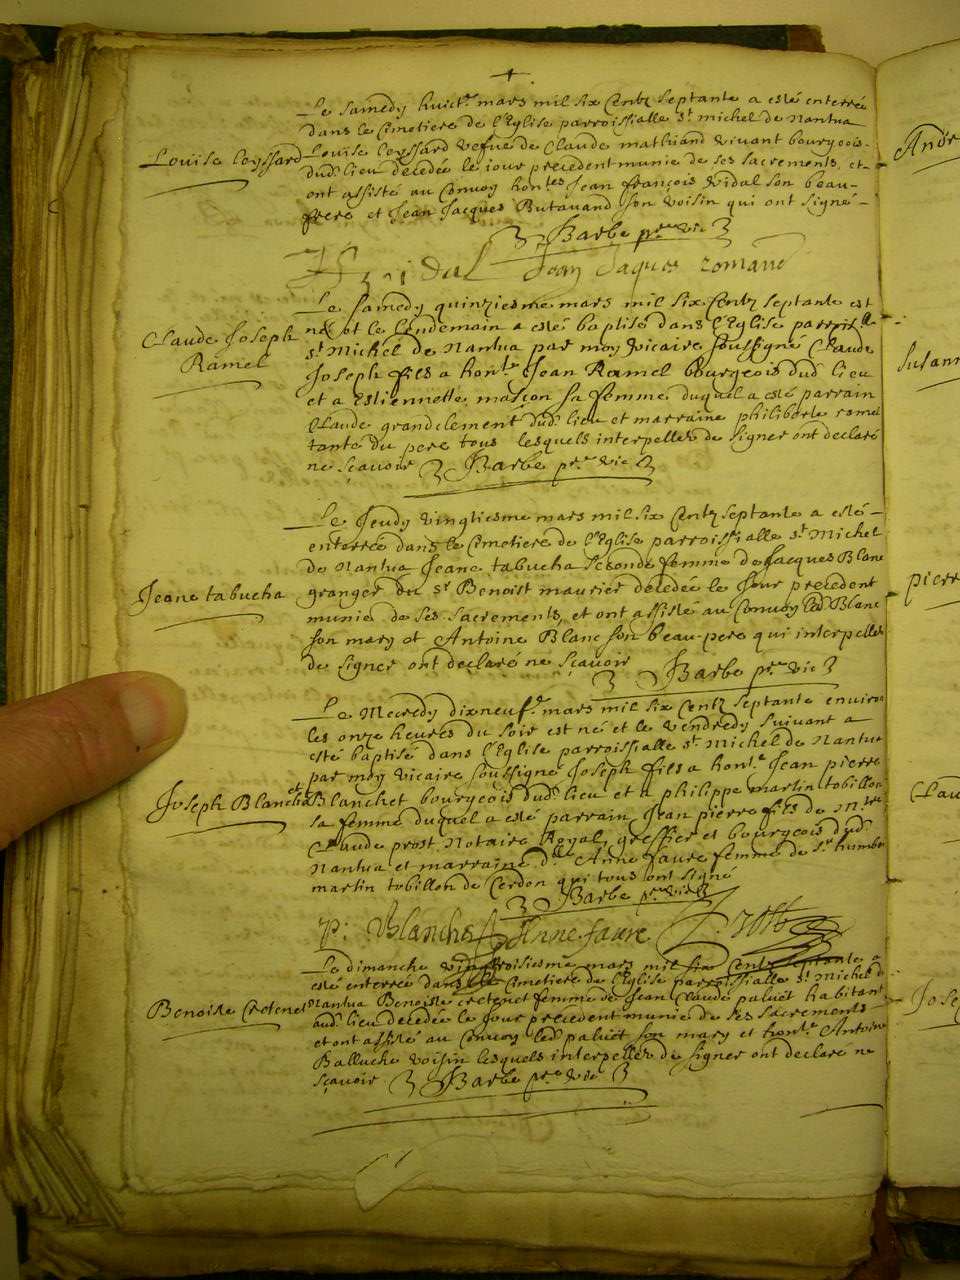 Le samedy huict.e mars mil six Centz septante a esté enterrée
dans le Cimetiere de l'Eglise parroissialle st michel de Nantua
Louise Coyssard
Louise Coyssard vefue de Claude mathiand vivant bourgeois
dud. lieu decedée le jour precedent munie de ses sacrements, et
ont assisté au Convoy hon.les Jean françois Vidal son beau-
frere et Jean Jacques Butavand son voisin qui ont signé
Barbe p.re vic
Vidal Jean Jaques
Le samedy quinziesme mars mil six Centz septante est
Claude Joseph
Ramel
né et le lendemain a esté baptisé dans l'Eglise parroiss.le
st Michel de Nantua par moy vicaire soussigné Claude
Joseph fils a hon.le Jean Ramel bourgeois dud. lieu
et a Estiennette masson sa femme duquel a esté parrain
Claude grandclement dud. lieu et marraine philiberte ramel
tante du pere tous lesquels interpellez de signer ont declaré
ne sçavoir Barbe p.re vic
Le Jeudy vingtiesme mars mil six Centz septante a esté
enterrée dans le Cimetiere de l'Eglise parroissialle st Michel
de Nantua Jeane tabucha seconde femme de Jacques Blanc
Jeane tabucha
granger du sr Benoist maurier decedée le Jour precedent
munie de ses sacrements, et ont assisté au Convoy led. Blanc
son mary et Antoine Blanc son beau-pere qui interpellez
de signer ont declaré ne sçavoir Barbe p.re vic
Le Mecredy dixneuf.e mars mil six Centz septante environ
les onze heures du soir est né et le vendredy suivant a
esté baptisé dans l'Eglise parroissialle st Michel de Nantua
par moy vicaire soussigné Joseph fils a hon.le Jean pierre
Joseph Blanchet
Blanchet bourgeois dud. lieu et a philippe martin tobillon
sa femme duquel a esté parrain Jean pierre fils de M.tre
Claude prost Notaire Royal, greffier et bourgeois dud.
Nantua et marraine d.lle Anne faure femme de sr humber
martin tobillon de Cerdon qui tous ont signé
Barbe p.re vic
P. Blanchet Anne faure
Le dimanche vingttroisiesme mars mil six Centz septante a
esté enterrée dans le Cimetiere de l'Eglise parroissialle st Michel de
Benoiste Cretenet
Nantua Benoiste cretenet femme de Jean Claude paluët habitant
aud. lieu decedée le Jour precedent munie de ses sacrements
et ont assisté au Convoy led. paluët son mary et hon.le Antoine
Balluche voisin lesquels interpellez de signer ont declaré ne
sçavoir Barbe p.re vic